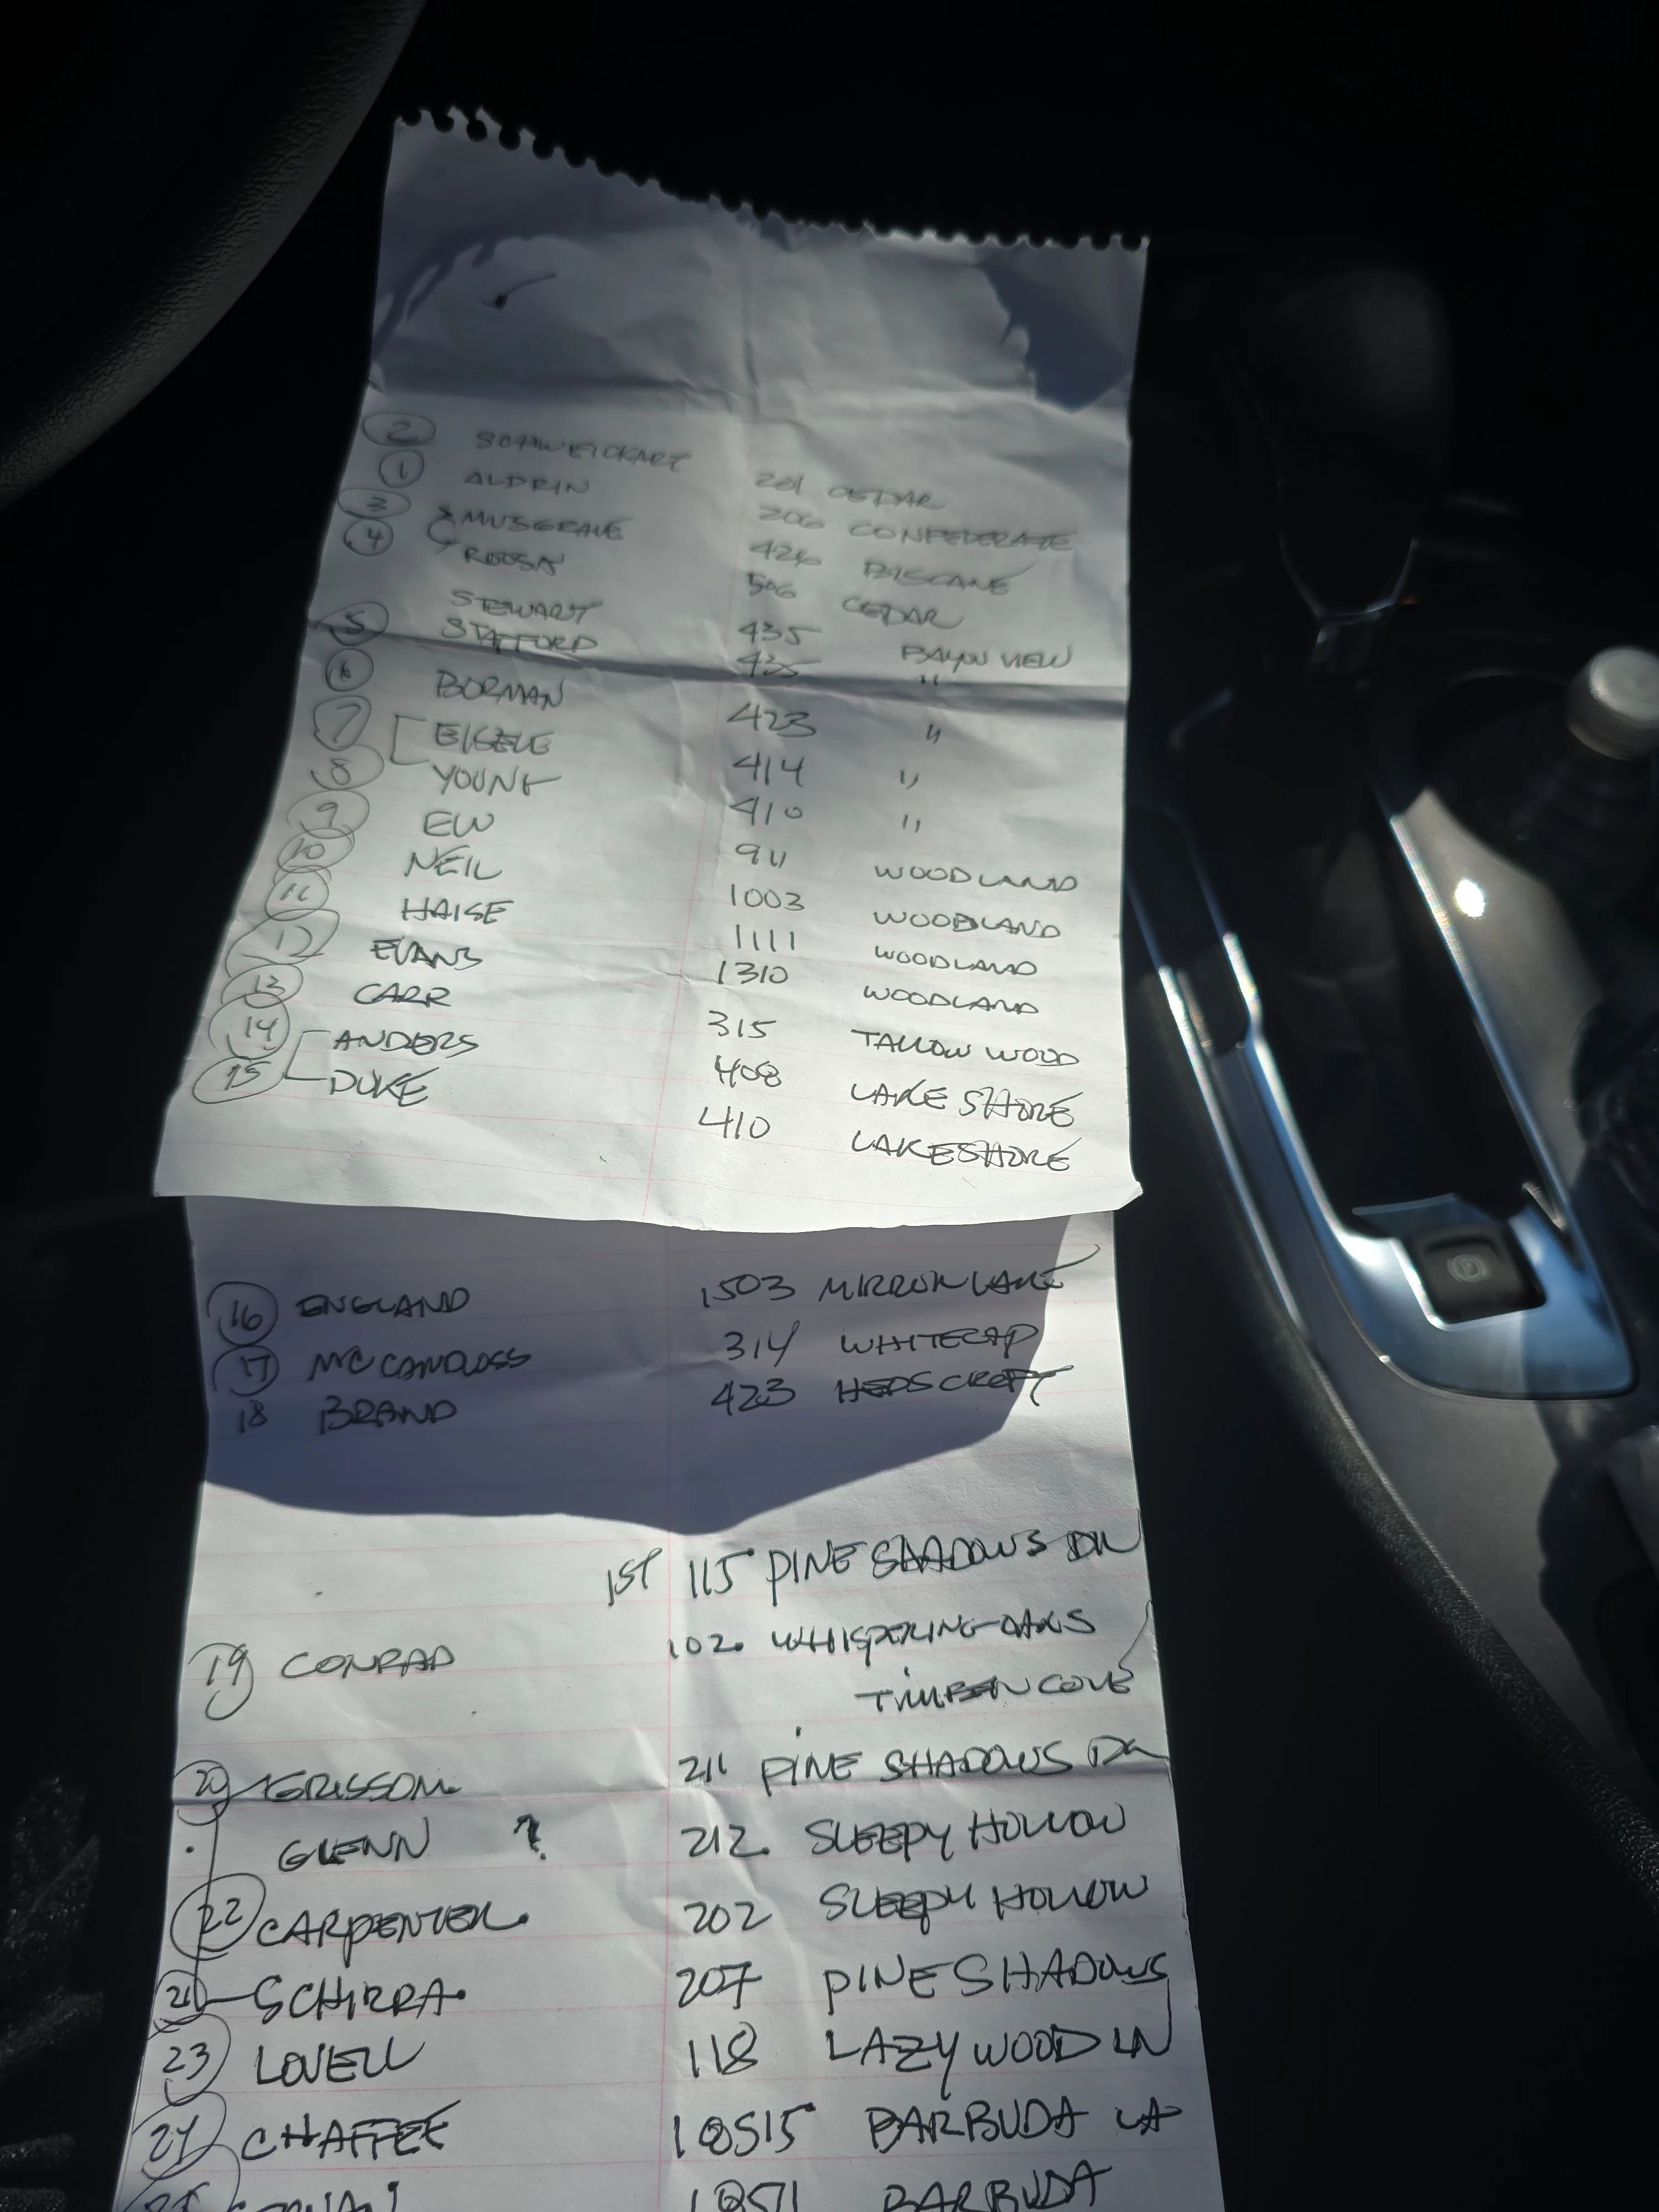 2 SCHWEICKART 201 CEDAR
1 ALDRIN 206 CONFEDERATE
3 MUSGRAVE 426 BISCANE
4 ROOSA 506 CEDAR
STEWART 435 BAYOU VIEW
5 STAFFORD 435 "
6 BORMAN 423 "
7 EISELE 414 "
8 YOUNG 410 "
9 EW 911 WOODLAND
10 NEIL 1003 WOODLAND
11 HAISE 1111 WOODLAND
12 EVANS 1310 WOODLAND
13 CARR 315 TALLOW WOOD
14 ANDERS 408 LAKE SHORE
15 DUKE 410 LAKESHORE
16 ENGLAND 1503 MIRROR LAKE
17 MCCANDLESS 314 WHITECAP
18 BRAND 423
1ST 115 PINE SHADOWS DR
19 CONRAD 102. WHISPERING OAKS
TIMBER COVE
20 GRISSOM 211 PINE SHADOWS DR
GLENN ? 212. SLEEPY HOLLOW
22 CARPENTER. 202 SLEEPY HOLLOW
21 SCHIRRA. 207 PINE SHADOWS
23 LOVELL 118 LAZYWOOD LN
24 CHAFFEE 18515 BARBUDA LA
25 BARBUDA